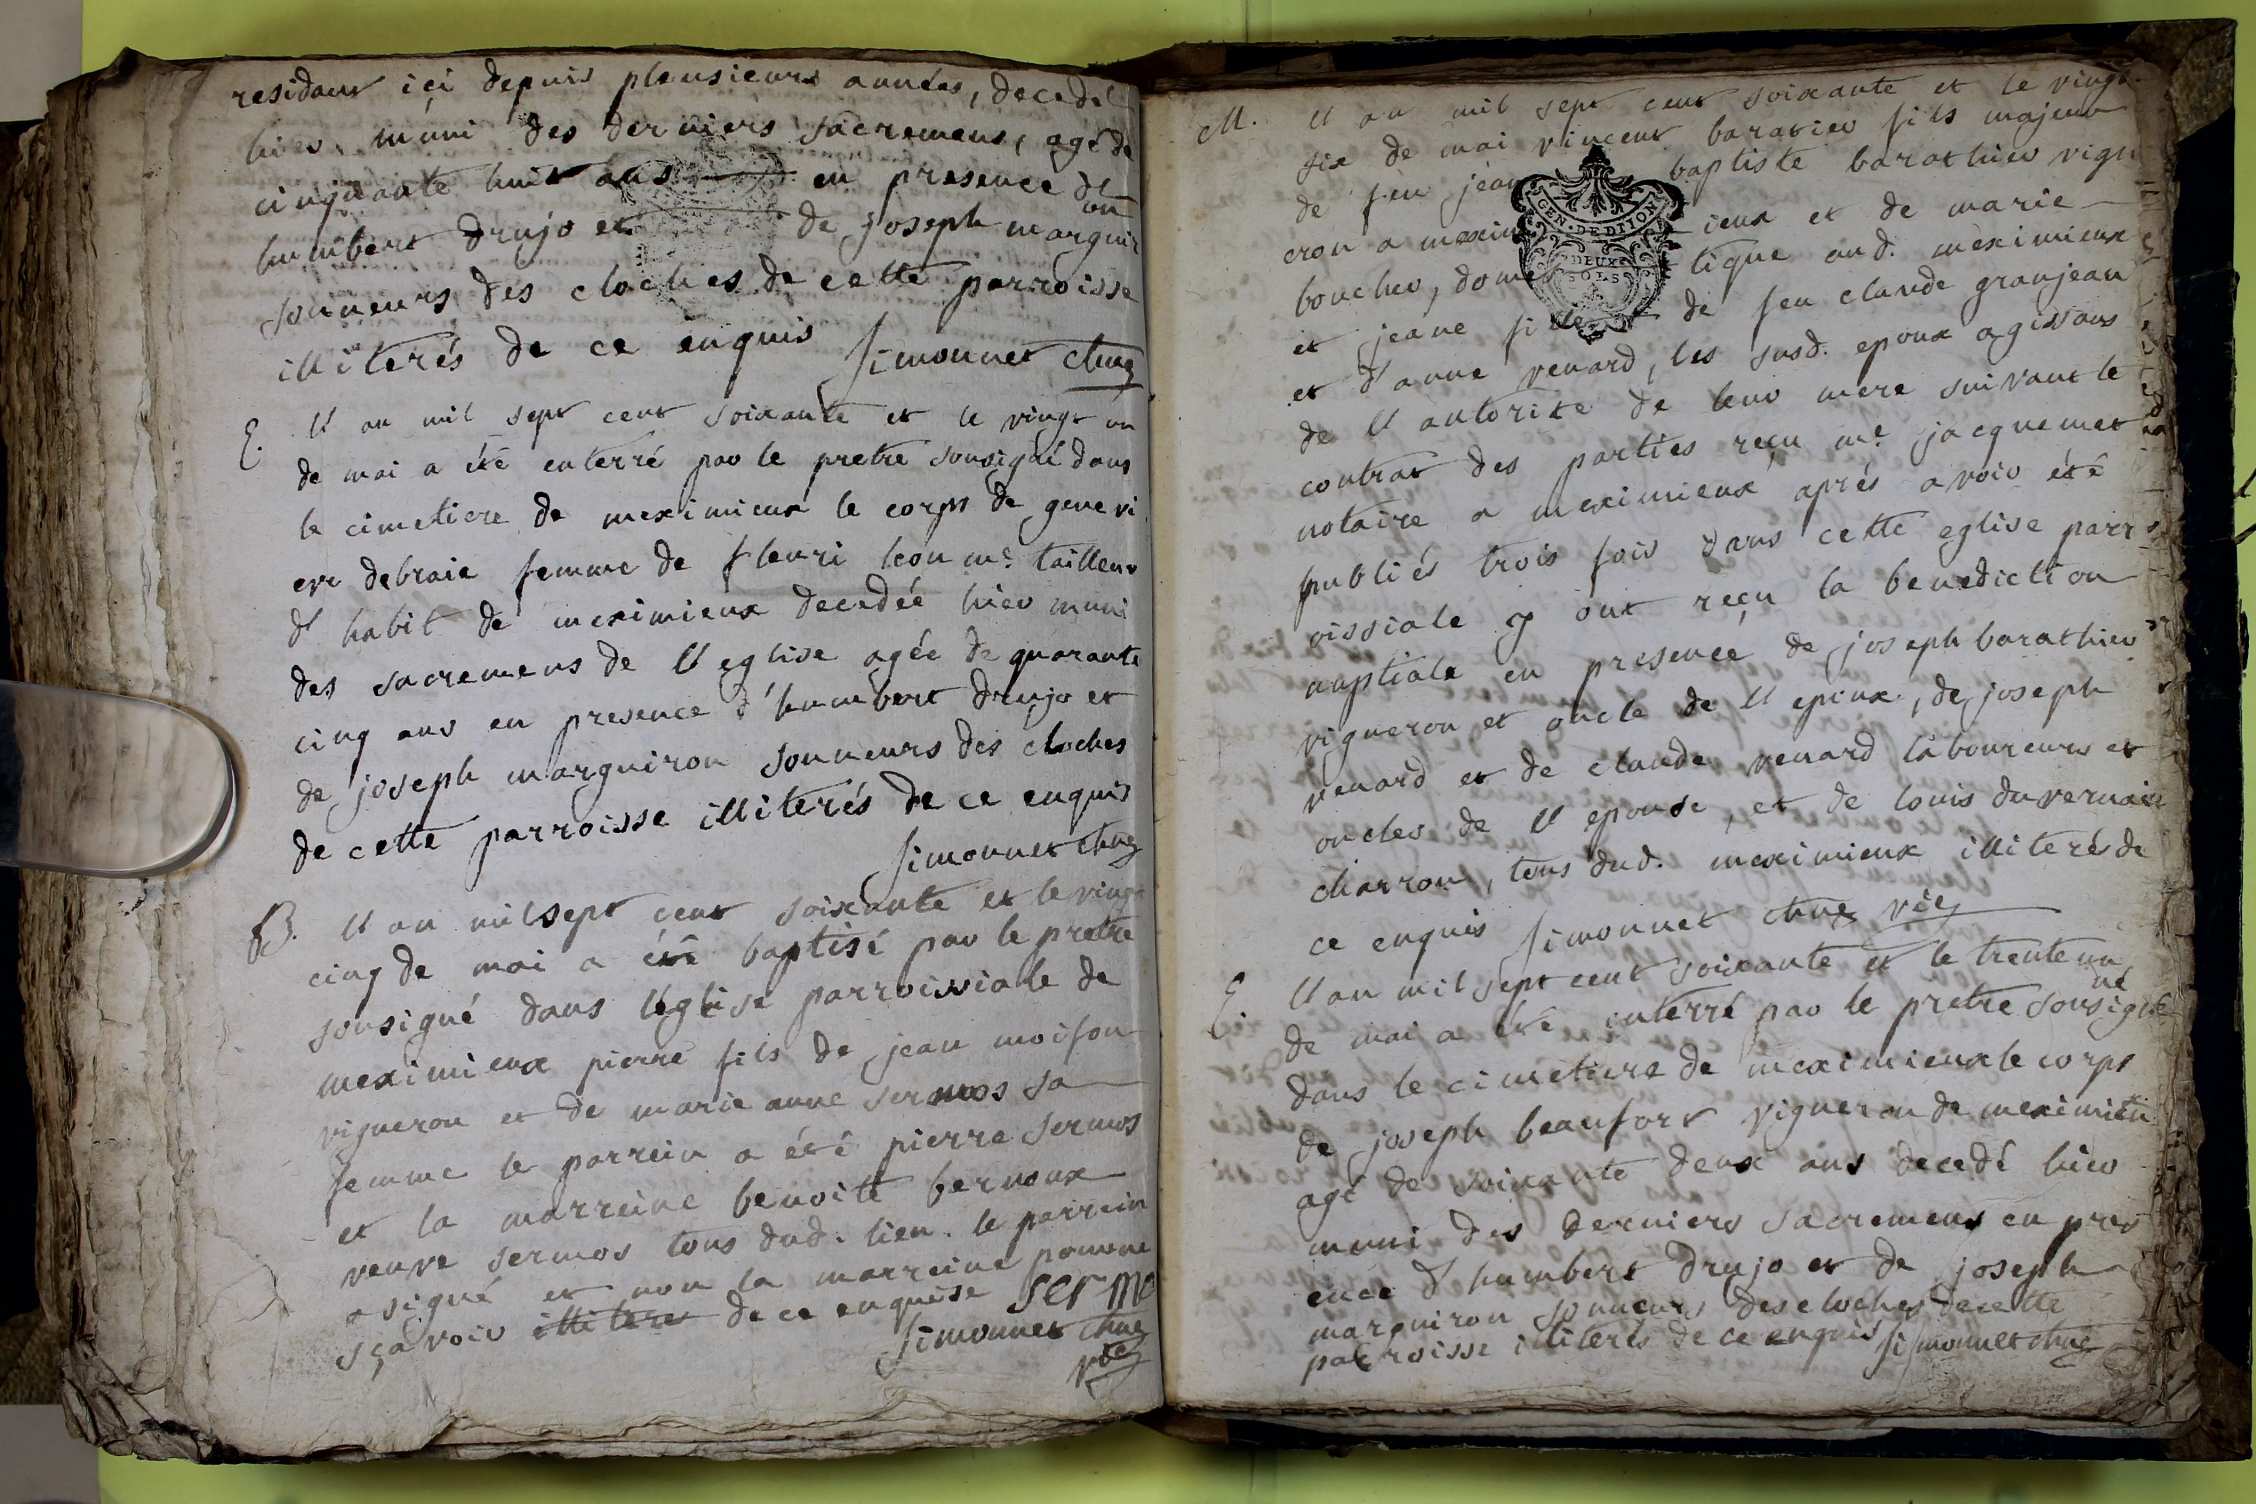 residant ici depuis pleusieurs années, decedé
hier muni des derniers sacremens, agé de
cinquante huit ans en presence d'
humbert drujo et de joseph marguir
on
sonneurs des cloches de cette parroisse
illiterés de ce enquis Simonnet chne
E. l'an mil sept cent soixante et le vingt un
de mai a été enterré par le pretre sousigné dans
le cimetiere de meximieux le corps de genevi
eve debraie femme de fleuri leon me. tailleur
d'habit de meximieux decedée hier muni
des sacremens de l'eglise agée de quarante
cinq ans en presence d'humbert drujo et
de joseph marguiron sonneurs des cloches
de cette parroisse illiterés de ce enquis
Simonnet chne
B. l'an mil sept cent soixante et le vingt
cinq de mai a été baptisé par le pretre
sousigné dans l'église parroissialle de
meximieux pierre fils de jean moifon
vigneron et de marie anne sermos sa
femme le parrein a été pierre sermos
et la marreine benoite bernoux
veuve sermos tous dud. lieu. le parrein
a signé et non la marreine pour ne
sçavoir illiteré de ce enquise Ser mo
Simonnet chne
vic
M. l'an mil sept cent soixante et le vingt
six de mai vincent baratier fils majeur
de feu jean baptiste barathier vign
eron a meximieux et de marie
boucher, domestique aud. meximieux
et jeane fille de feu claude granjean
et d'anne venard, les susd. epoux agissans
de l'autorite de leur mere suivant le
contrat des parties reçu me. jacquemet
notaire a meximieux aprés avoir été
publiés trois fois dans cette eglise parr
oissiale y ont reçu la benediction
nuptiale en presence de joseph barathier
vigneron et oncle de l'epoux, de joseph
venard et de claude venard laboureurs et
oncles de l'epouse, et de louis duvernai
charron, tous dud. meximieux illiterés de
ce enquis Simonnet chne vic
E. l'an mil sept cent soixante et le trente un
de mai a été enterré par le pretre sousigné
dans le cimetiere de meximieux le corps
de joseph beaufort vigneron de meximieu
agé de soixante deux ans decedé hier
muni des derniers sacremens en pres
ence d'humbert drujo et de joseph
marguiron sonneurs des cloches de cette
parroisse illiterés de ce enquis Simonnet chne
GEN. DE DIJON
DEUX
SOLS